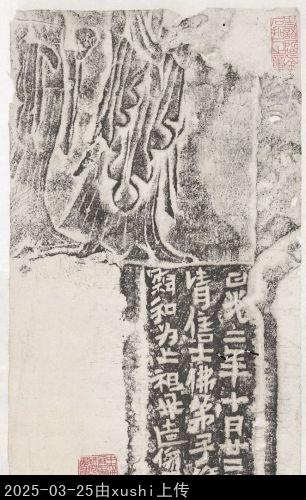 正光二年十日廿
清信士佛弟子
和为亡祖母造像
2025-03-25由xushi上传